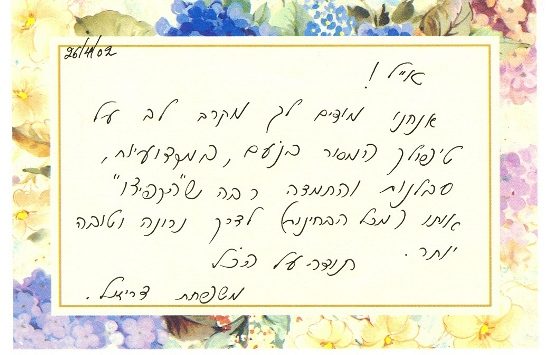 26/4/02
אייל!
אנחנו מודים לך מקרב לב על
טיפולך המסור בנועם, במקצועיות,
סבלנות והתמדה רבה ש"הקפיצו"
אותנו (מכל הבחינות) לדרך נכונה וטובה
יותר.
תודה על הכל
משפחת